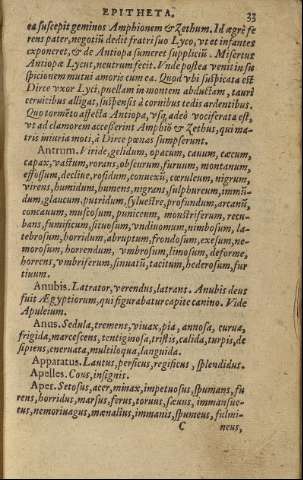 EPITHETA. 33
ea suscepit geminos Amphionem & Zethum. Id ægrè fe
rens pater, negotiũ dedit fratri suo Lyco, vt et infantes
exponeret, & de Antiopa sumeret suppliciũ. Misertus
Antiopæ Lycus, neutrum fecit. Vnde postea venit in su
spicionem mutui amoris cum ea. Quod vbi suspicata est
Dirce vxor Lyci, puellam in montem abductam, tauri
ceruicibus alligat, suspensis à cornibus tedis ardentibus.
Quo tormẽto affecta Antiopa, vsq; adeò vociferata est,
vt ad clamorem accesserint Amphiõ & Zethus, qui ma-
tris iniuria moti, à Dirce pœnas sumpserunt.
Antrum. Viride, gelidum, opacum, cauum, cæcum,
capax, vastum, rorans, obscurum, furuum, montanum,
effossum, decliue, rosidum, conuexũ, cœruleum, nigrum,
virens, humidum, humens, nigrans, sulphureum, immũ-
dum, glaucum, putridum, syluestre, profundum, arcanũ,
concauum, muscosum, puniceum, monstriferum, recu-
bans, fumificum, situosum, vndinomum, nimbosum, la-
tebrosum, horridum, abruptum, frondosum, exesum, ne-
morosum, horrendum, vmbrosum, limosum, deforme,
horrens, vmbriferum, sinuatũ, tacitum, hederosum, fur
tiuum.
Anubis. Latrator, verendus, latrans. Anubis deus
fuit Ægyptiorum, qui figurabatur capite canino. Vide
Apuleium.
Anus. Sedula, tremens, viuax, pia, annosa, curua,
frigida, marcescens, tentiginosa, tristis, calida, turpis, de
sipiens, eneruata, multiloqua, languida.
Apparatus. Lautus, persicus, regificus, splendidus.
Apelles. Cous, insignis.
Aper. Setosus, acer, minax, impetuosus, spumans, fu
rens, horridus, marsus, ferus, toruus, sæuus, immansue-
tus, nemoriuagus, mænalius, immanis, spumeus, fulmi-
C neus,